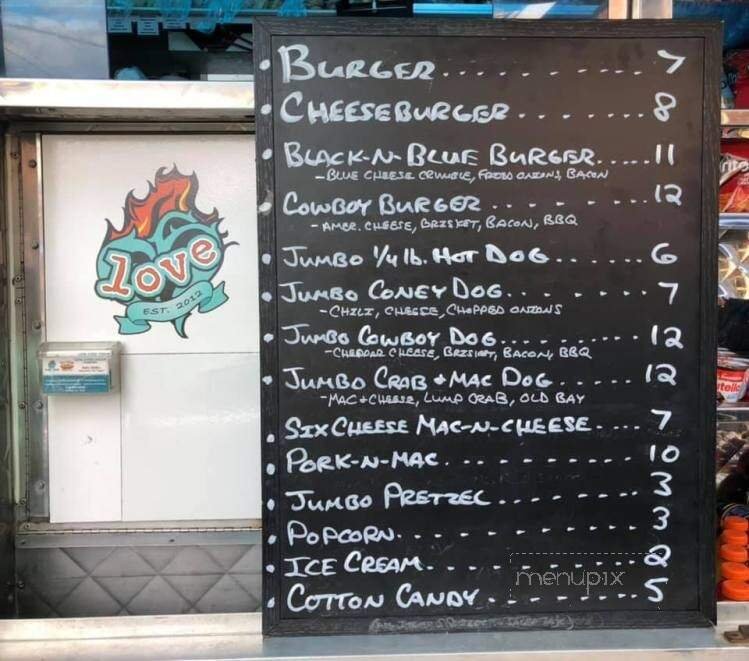 • BURGER........... 7
• CHEESEBURGER....... 8
• BLACK-N-BLUE BURGER..... 11
-BLUE CHEESE CRUMBLE, FRIED ONIONS, BACON
• COWBOY BURGER......... 12
-AMER. CHEESE, BRISKET, BACON, BBQ
• JUMBO 1/4 lb. HOT DOG....... 6
• JUMBO CONEY DOG........ 7
-CHILI, CHEESE, CHOPPED ONIONS
• JUMBO COWBOY DOG........ 12
-CHEDDAR CHEESE, BRISKET, BACON, BBQ
• JUMBO CRAB + MAC DOG...... 12
-MAC+CHEESE, LUMP CRAB, OLD BAY
• SIX CHEESE MAC-N-CHEESE.... 7
• PORK-N-MAC........... 10
• JUMBO PRETZEL......... 3
• POPCORN........... 3
• ICE CREAM........... 2
• COTTON CANDY......... 5
love
EST. 2012
menupix